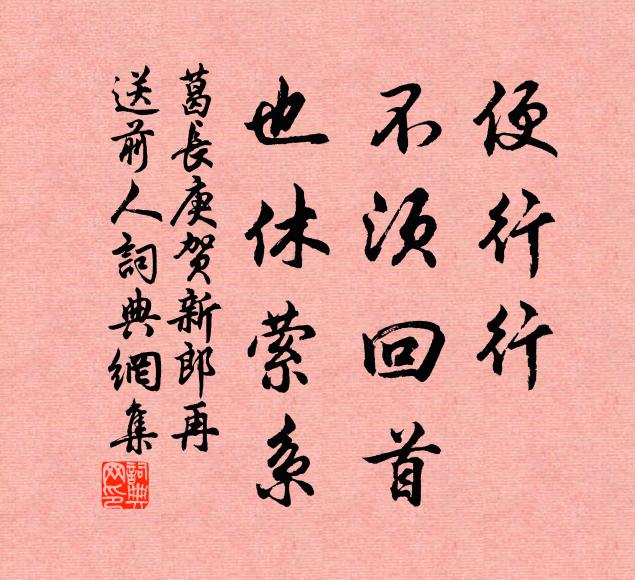 便行行
不须回首
也休萦系
葛長庚賀新郎再
送前人詞典網集
詞典网印